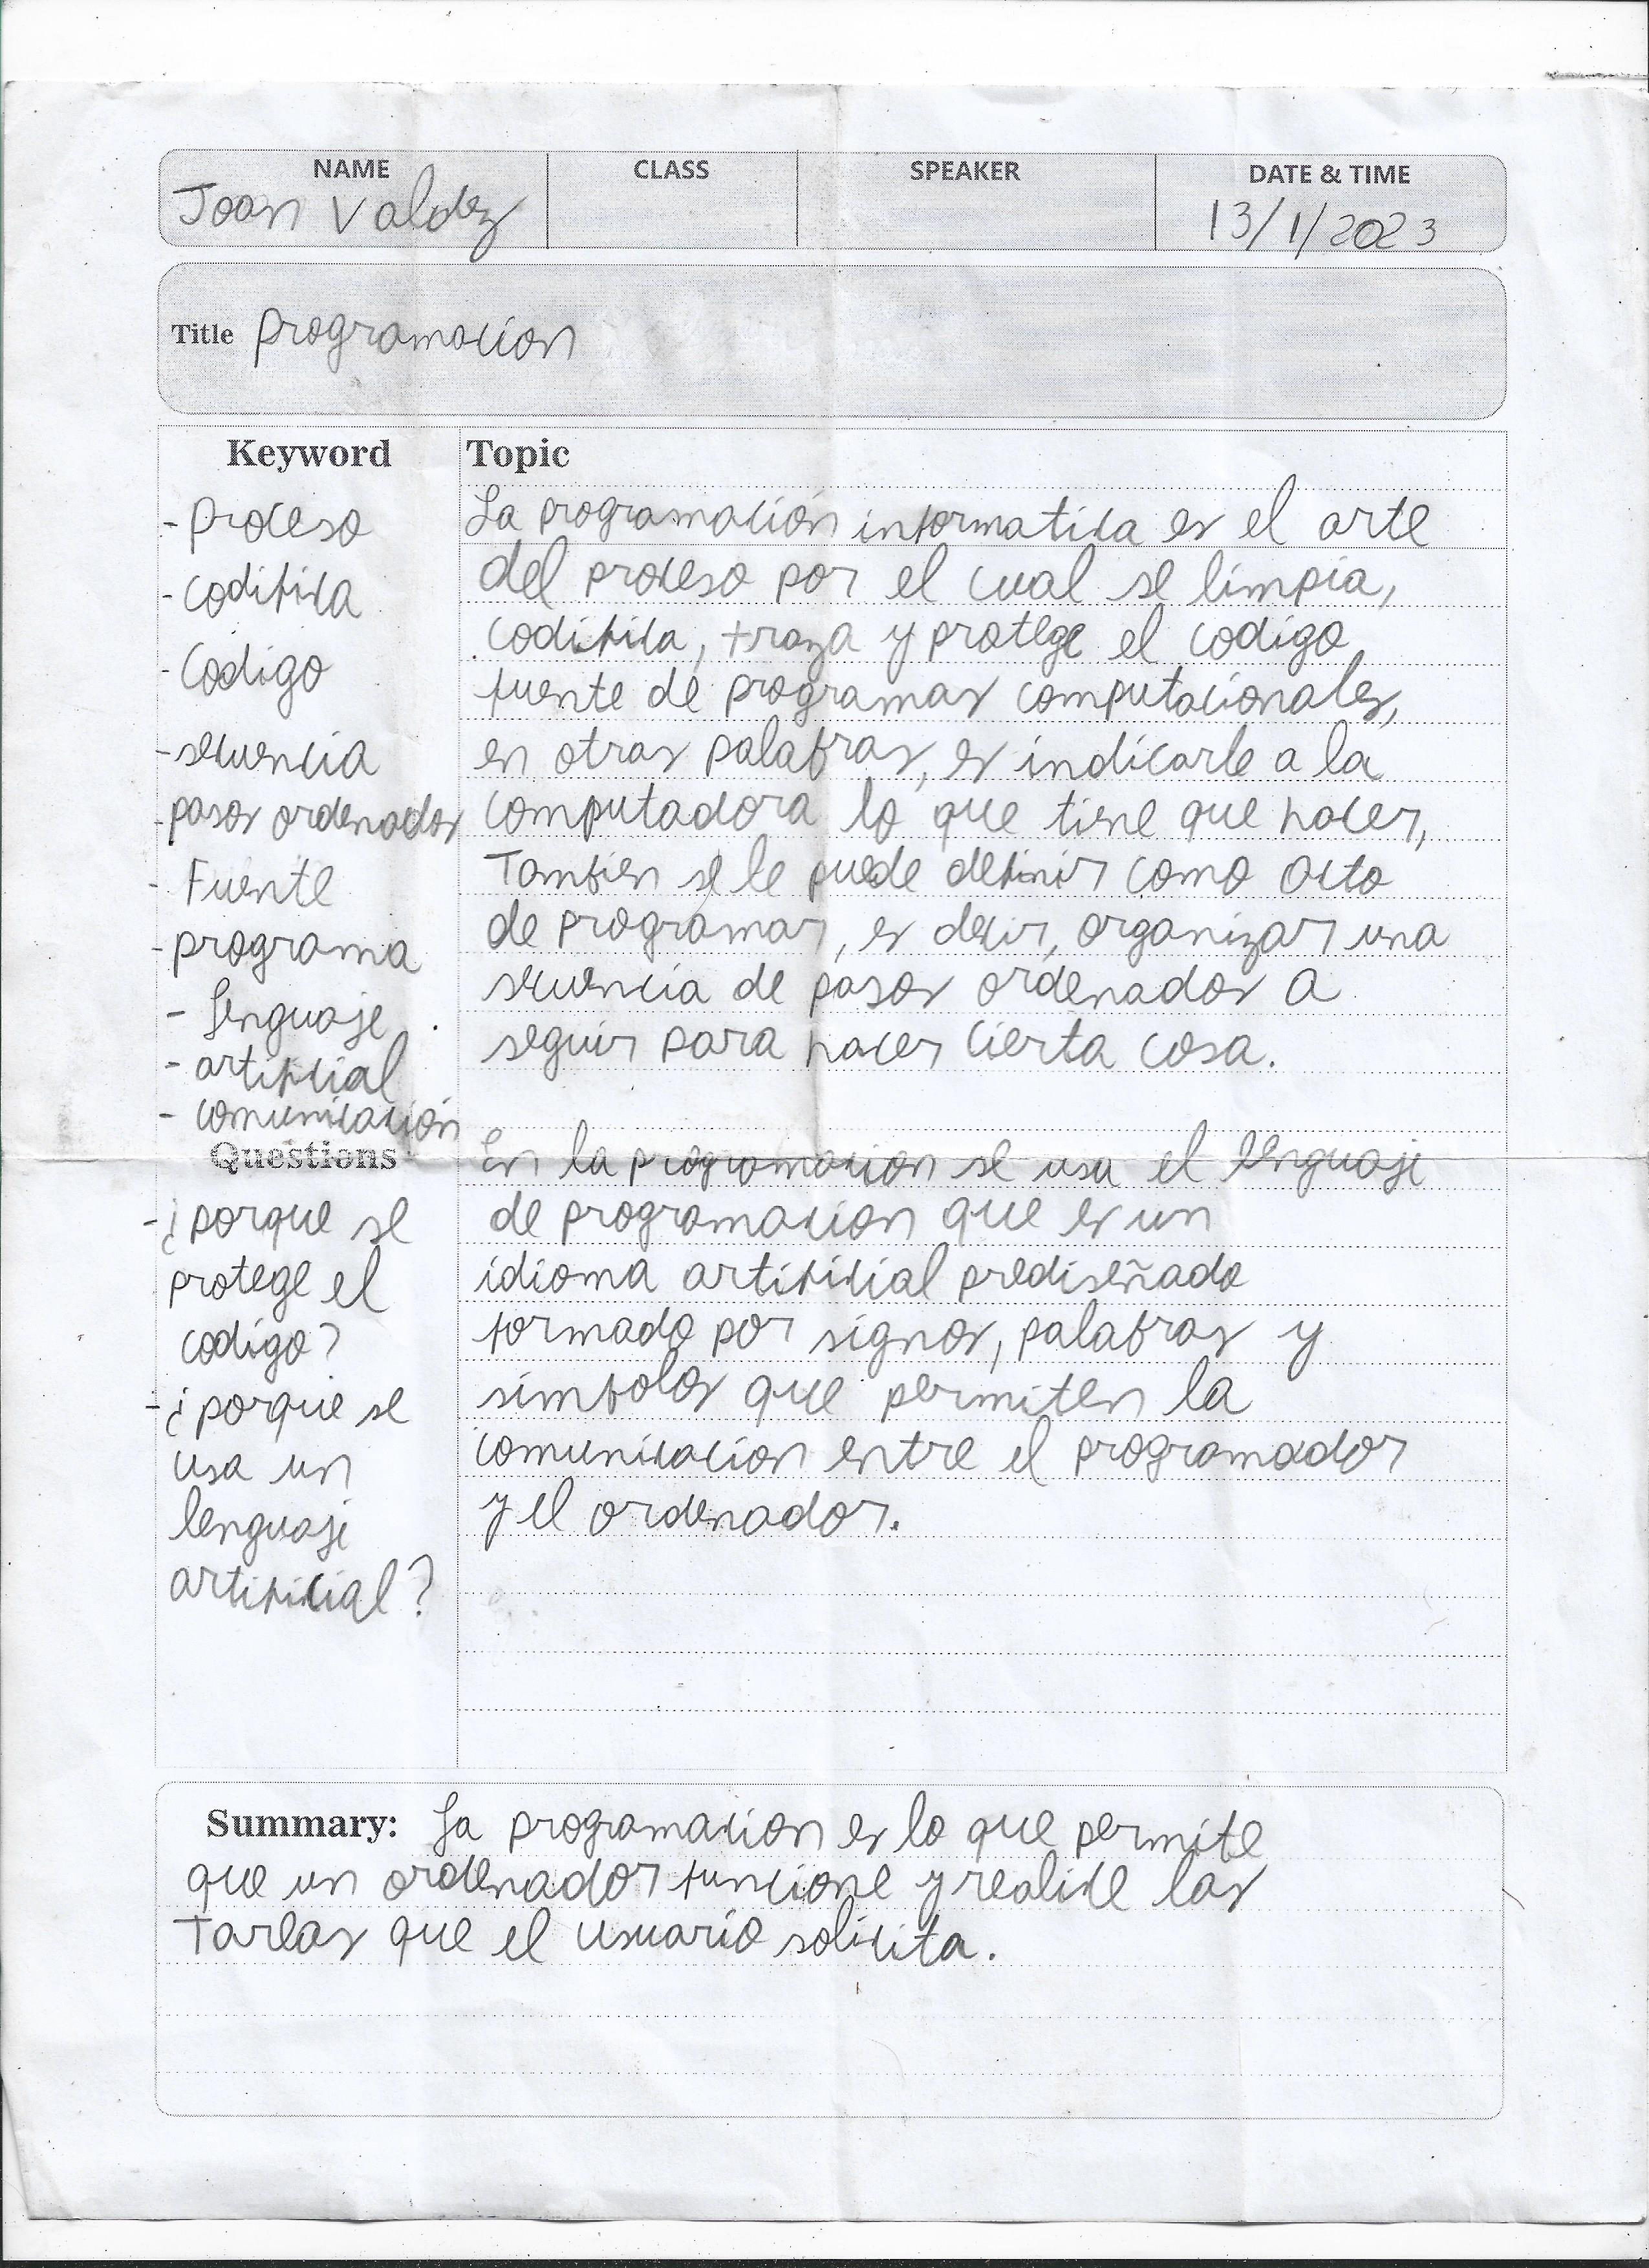 NAME
CLASS
SPEAKER
DATE & TIME
Joan Valdez
13/1/2023
Title programacion
Keyword
- proceso
- codifica
- Codigo
- secuencia
- pasos ordenados
- Fuente
- programa
- Lenguaje
- artificial
- comunicación
Questions
- ¿porque se
protege el
codigo?
- ¿porque se
usa un
lenguaje
artificial?
Topic
La programación informatica es el arte
del proceso por el cual se limpia,
codifica, traza y protege el codigo
fuente de programas computacionales,
en otras palabras, es indicarle a la
computadora lo que tiene que hacer,
Tambien se le puede definir como acto
de programar, es decir, organizar una
secuencia de pasos ordenados a
seguir para hacer cierta cosa.
En la programacion se usa el lenguaje
de programacion que es un
idioma artificial prediseñado
formado por signos, palabras y
simbolos que permiten la
comunicacion entre el programador
y el ordenador.
Summary: La programacion es lo que permite
que un ordenador funcione y realice las
Tareas que el usuario solicita.